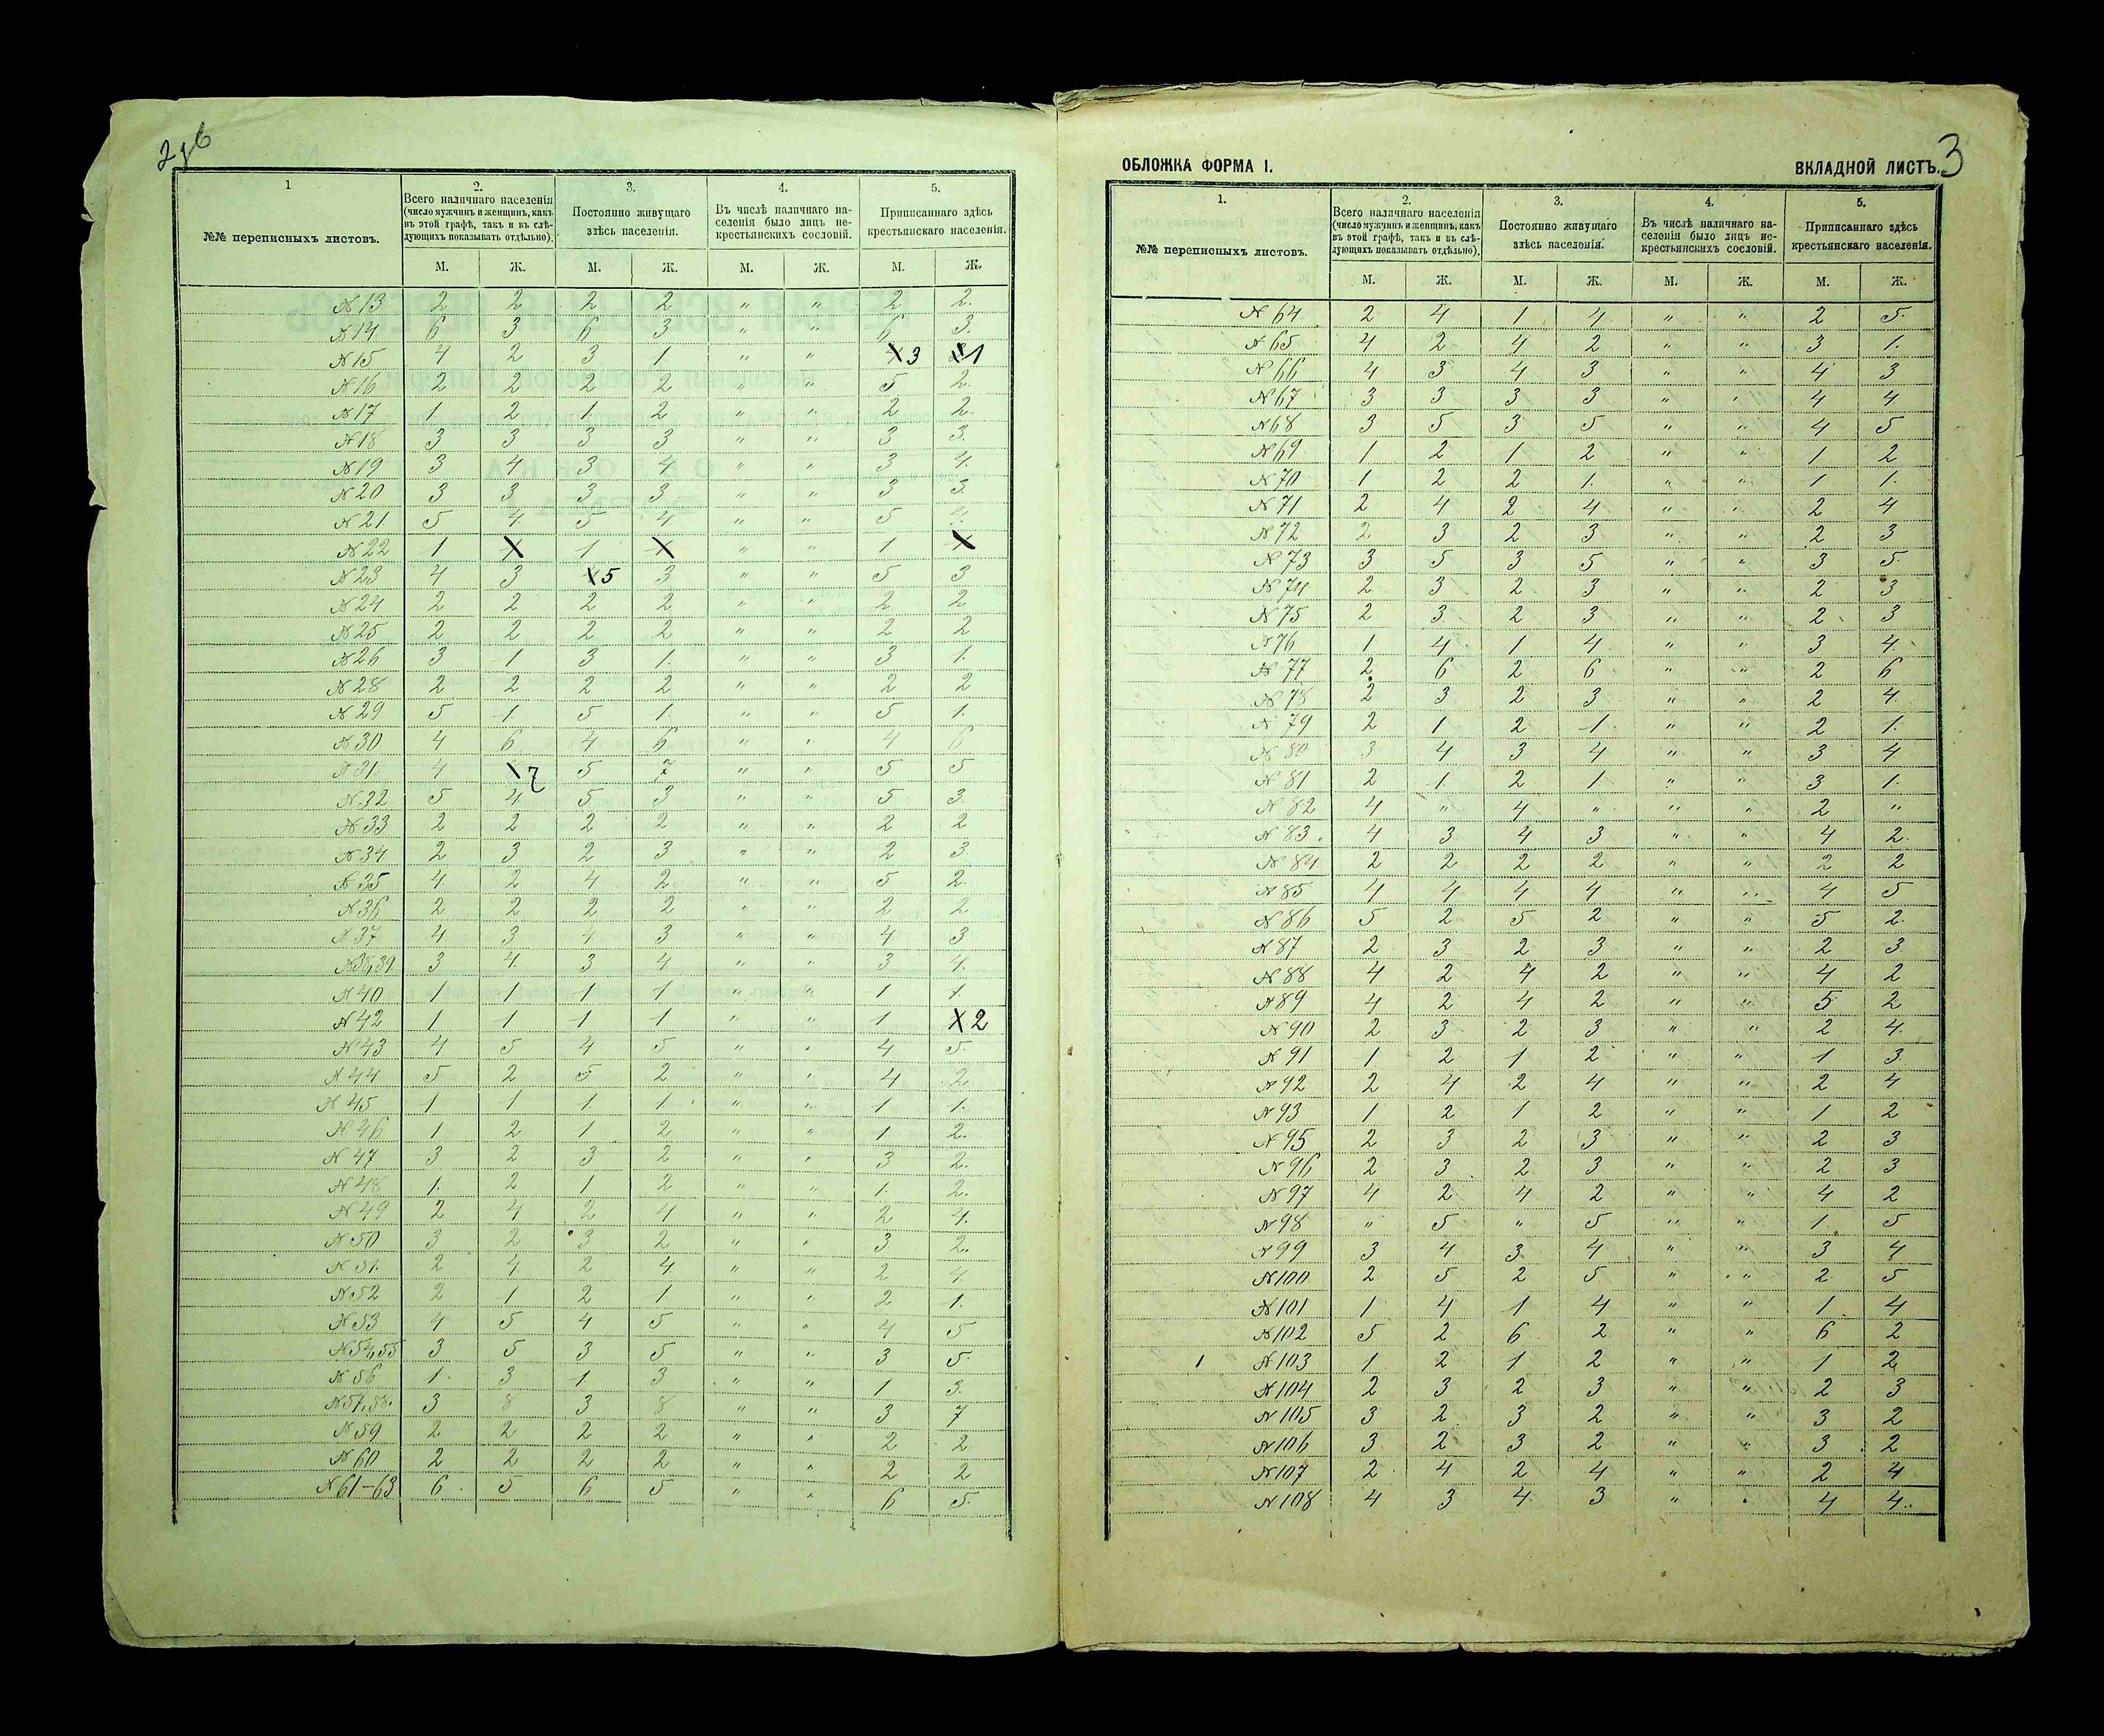 2 об
1 2. 3. 4. 5.
№№ переписныхъ листовъ. Всего наличнаго населенія (число мужчинъ и женщинъ, какъ въ этой графѣ, такъ и въ слѣдующихъ показывать отдѣльно). Постоянно живущаго здѣсь населенія. Въ числѣ наличнаго населенія было лицъ не-крестьянскихъ сословій. Приписаннаго здѣсь крестьянскаго населенія.
М. Ж. М. Ж. М. Ж. М. Ж.
№ 13 2 2 2 2 " " 2 2.
№ 14 6 3 6 3 " " 6 3.
№ 15 4 2 3 1 " " 3 1
№ 16 2 2 2 2 " " 5 2.
№ 17 1 2 1 2 " " 2 2.
№ 18 3 3 3 3 " " 3 3.
№ 19 3 4 3 4 " " 3 4.
№ 20 3 3 3 3 " " 3 3.
№ 21 5 4. 5 4 " " 5 4.
№ 22 1 X 1 X " " 1 X
№ 23 4 3 X5 3 " " 5 3
№ 24 2 2 2 2 " " 2 2
№ 25 2 2 2 2 " " 2 2
№ 26 3 1 3 1. " " 3 1.
№ 28 2 2 2 2 " " 2 2
№ 29 5 1. 5 1. " " 5 1.
№ 30 4 6 4 6 " " 4 6
№ 31. 4 7 5 7 " " 5 5
№ 32 5 4. 5 3 " " 5 3.
№ 33 2 2 2 2 " " 2 2
№ 34 2 3 2 3 " " 2 3.
№ 35 4 2 4 2. " " 5 2.
№ 36 2 2 2 2 " " 2 2.
№ 37 4 3 4 3 " " 4 3
№ 38,39 3 4. 3 4 " " 3 4.
№ 40 1 1 1 1 " " 1 1.
№ 42 1 1 1 1 " " 1 X 2
№ 43 4 5 4 5 " " 4 5.
№ 44 5 2 5 2 " " 4 2
№ 45 1 1 1. 1. " " 1 1.
№ 46 1 2 1 2 " " 1 2.
№ 47 3 2 3 2 " " 3 2.
№ 48 1. 2 1 2 " " 1. 2.
№ 49 2 4 2 4 " " 2 4.
№ 50 3 2 3 2 " " 3 2.
№ 51. 2 4 2 4 " " 2 4.
№ 52 2 1 2 1 " " 2 1.
№ 53 4 5 4 5 " " 4 5
№ 54,55 3 5 3 5 " " 3 5.
№ 56 1. 3 1. 3 " " 1 3.
№ 57,58. 3 8 3 8 " " 3 7
№ 59 2 2 2 2 " " 2 2
№ 60 2 2 2 2 " " 2 2
№ 61-63 6 5 6 5 " " 6 5.
ОБЛОЖКА ФОРМА I. ВКЛАДНОЙ ЛИСТЪ. 3
1. 2. 3. 4. 5.
№№ переписныхъ листовъ. Всего наличнаго населенія (число мужчинъ и женщинъ, какъ въ этой графѣ, такъ и въ слѣдующихъ показывать отдѣльно). Постоянно живущаго здѣсь населенія. Въ числѣ наличнаго населенія было лицъ не-крестьянскихъ сословій. Приписаннаго здѣсь крестьянскаго населенія.
М. Ж. М. Ж. М. Ж. М. Ж.
№ 64 2 4 1 4 " " 2 5.
№ 65 4 2 4 2 " " 3 1.
№ 66 4 3 4 3 " " 4 3
№ 67 3 3 3 3 " " 4 4
№ 68 3 5 3 5 " " 4 5
№ 69 1 2 1 2 " " 1 2
№ 70 1 2 2 1. " " 1 1.
№ 71 2 4 2 4 " " 2 4
№ 72 2 3 2 3 " " 2 3
№ 73 3 5 3 5 " " 3 5.
№ 74 2 3 2 3 " " 2 3
№ 75 2 3 2 3 " " 2 3
№ 76 1 4 1 4 " " 3 4.
№ 77 2 6 2 6 " " 2 6
№ 78 2 3 2 3 " " 2 4.
№ 79 2 1 2 1. " " 2 1.
№ 80 3 4 3 4 " " 3 4
№ 81 2 1. 2 1 " " 3 1.
№ 82 4 " 4 " " " 2 "
№ 83. 4 3 4 3 " " 4 2.
№ 84 2 2 2 2 " " 2 2
№ 85 4 4 4 4 " " 4 5
№ 86 5 2 5 2 " " 5 2.
№ 87 2 3 2 3 " " 2 3
№ 88 4 2 4 2 " " 4 2
№ 89 4 2 4 2 " " 5 2
№ 90 2 3 2 3 " " 2 4.
№ 91 1 2 1 2 " " 1 3.
№ 92 2 4 2 4 " " 2 4
№ 93 1 2 1 2 " " 1 2
№ 95 2 3 2 3 " " 2 3
№ 96 2 3 2 3 " " 2 3
№ 97 4 2 4 2 " " 4 2
№ 98 " 5 " 5 " " 1 5
№ 99 3 4 3 4 " " 3 4
№ 100 2 5 2 5 " " 2 5
№ 101 1 4 1 4 " " 1. 4
№ 102 5 2 6 2 " " 6 2
№ 103 1 2 1 2 " " 1 2
№ 104 2 3 2 3 " " 2 3
№ 105 3 2 3 2 " " 3 2
№ 106 3 2 3 2 " " 3 2
№ 107 2 4 2 4 " " 2 4
№ 108 4 3 4 3 " " 4 4.